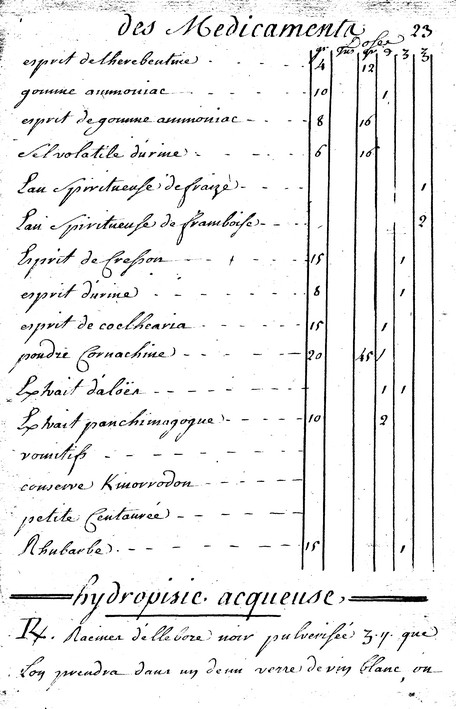 des Medicaments 23
Doses
gr jus gr ℈ ʒ ℥
esprit de therebentine 4 12
gomme ammoniac 10 1
esprit de gomme ammoniac 8 16
Sel volatile durine 6 16
Eau Spiritueuse de fraize 1
Eau Spiritueuse de framboise 2
Esprit de Cresson 15 1
esprit durine 8 1
esprit de coclhearia 15 1
poudre Cornachine 20 45 1
Extrait daloës 1 1
Extrait panchimagogue 10 2
vomitifs
conserve Kinorrodon
petite Centaurée
Rhubarbe 15 1
hydropisie acqueuse,
R. Racines déllebore noir pulverisée ʒ.ij. que
Lon prendra dans un demi verre de vin blanc, ou